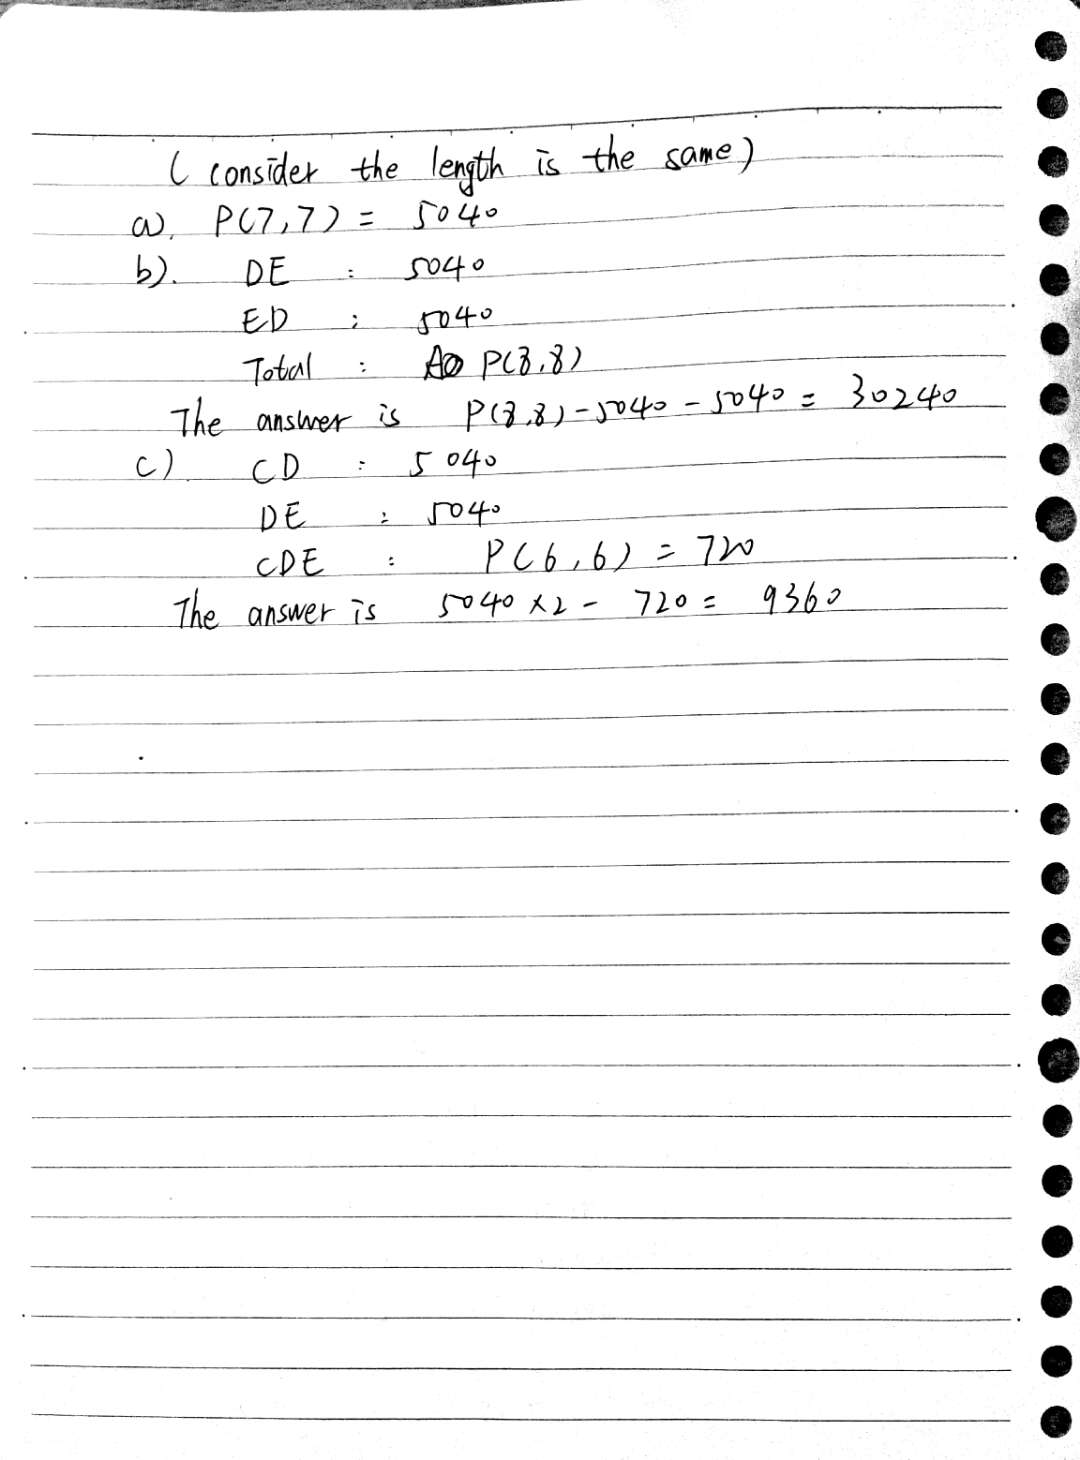 ( consider the length is the same )
a). P(7,7) = 5040
b). DE : 5040
ED : 5040
Total : P(8,8)
The answer is P(8,8) - 5040 - 5040 = 30240
c) CD : 5040
DE : 5040
CDE : P(6,6) = 720
The answer is 5040 x 2 - 720 = 9360